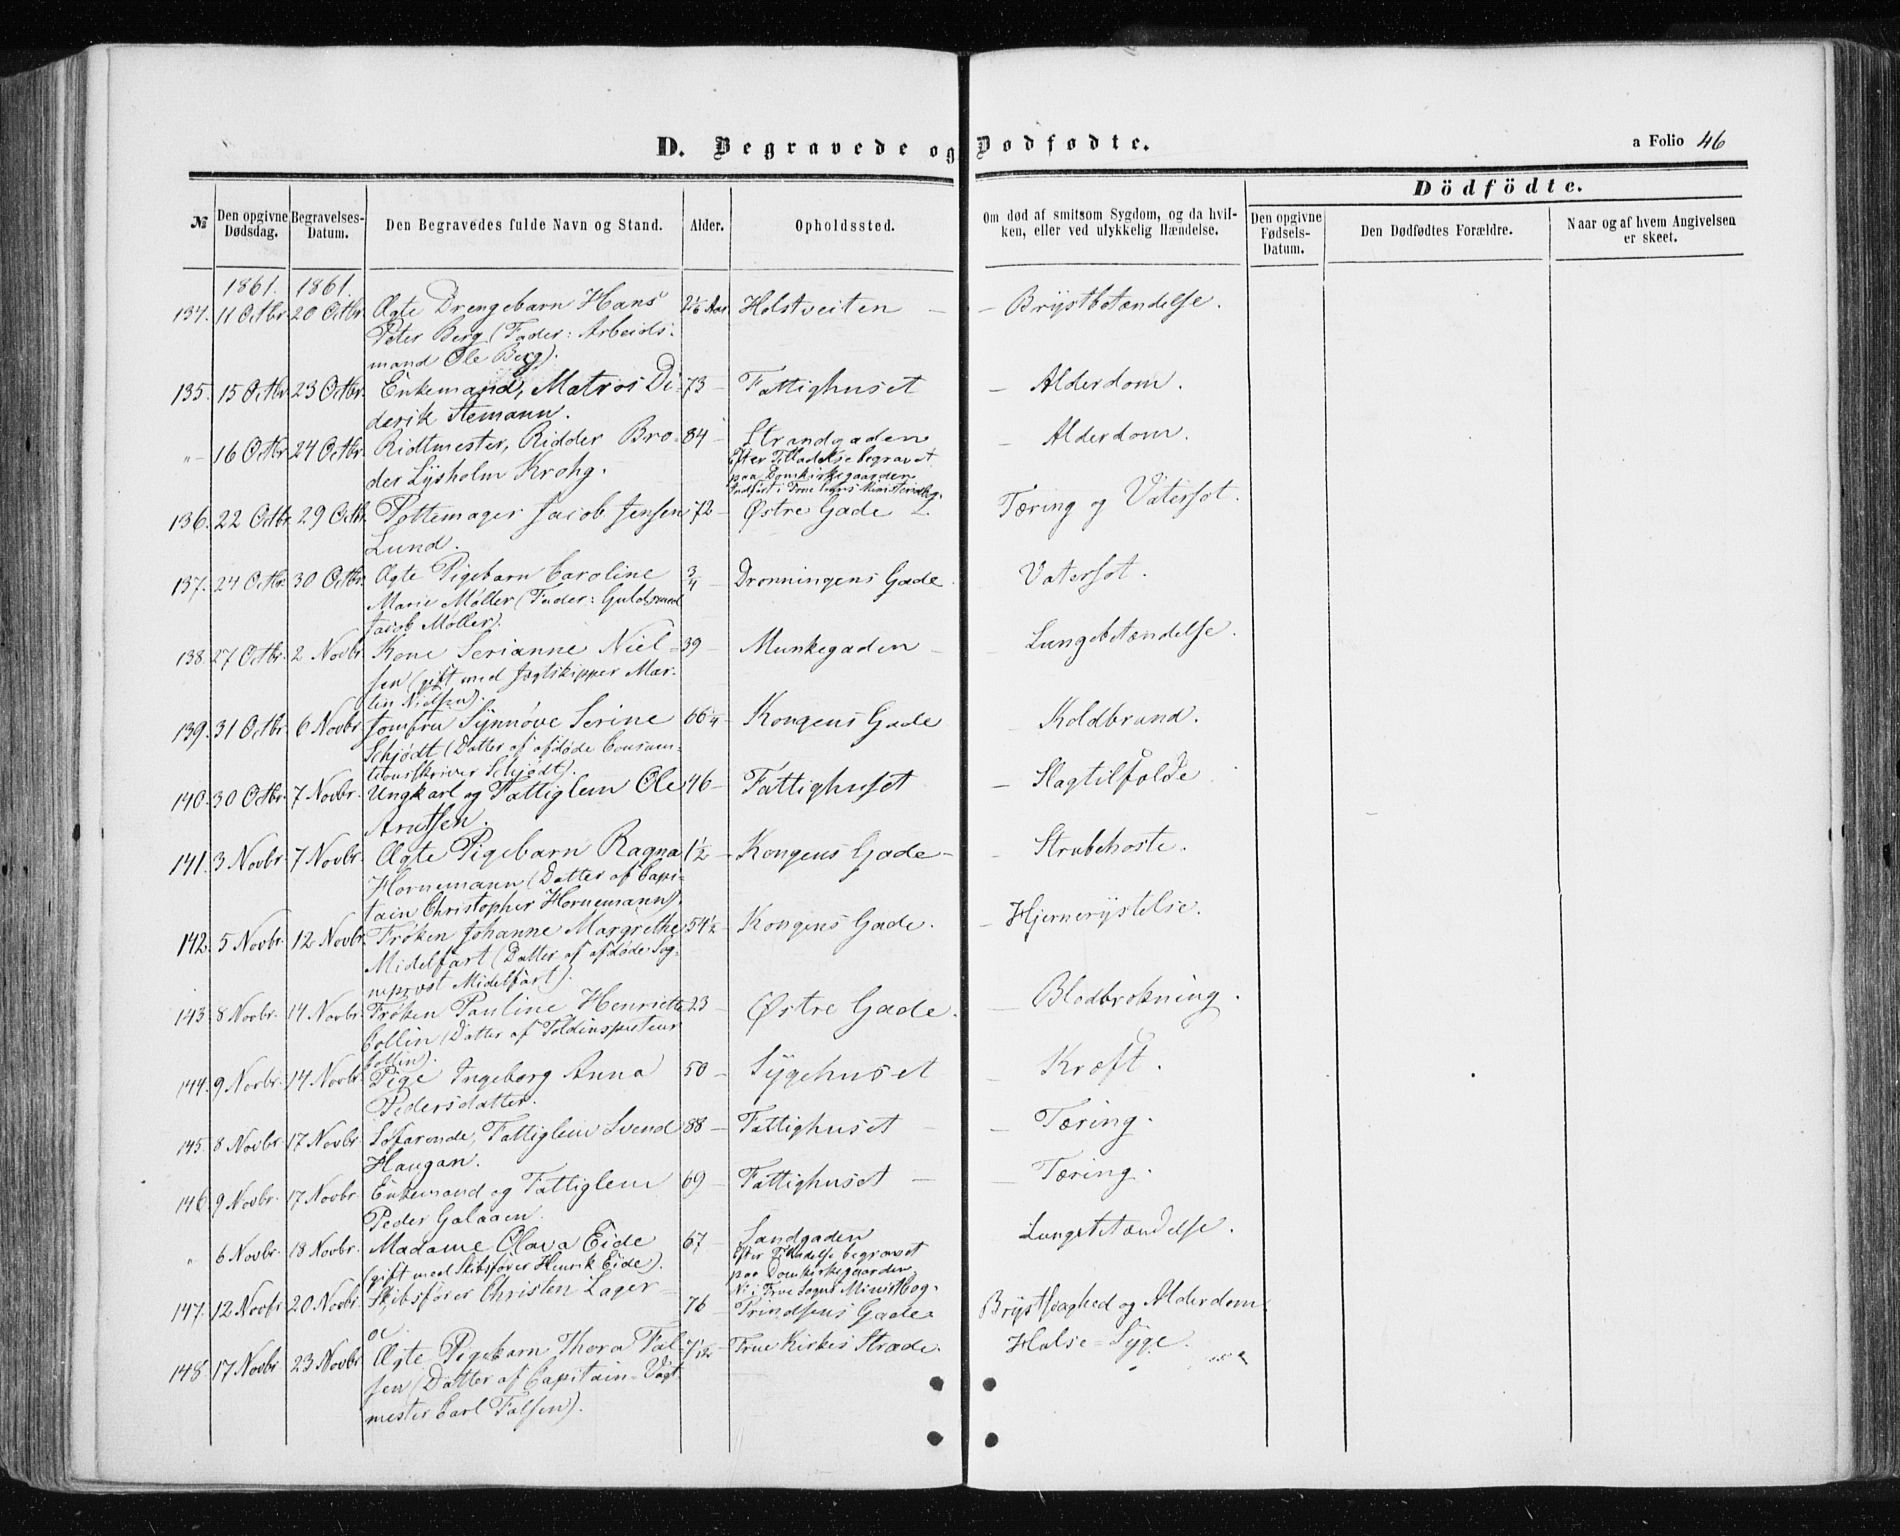 D. Begravede og Dødfødte.
a Folio 46
Dödfödte.
№
Den opgivne Dødsdag.
Begravelses-Datum.
Den Begravedes fulde Navn og Stand.
Alder.
Opholdssted.
Om død af smitsom Sygdom, og da hvil-
ken, eller ved ulykkelig Hændelse.
Den opgivne Fødsels-Datum.
Den Dødfødtes Forældre.
Naar og af hvem Angivelsen
er skeet.
1861. 1861.
134. 11 Octbr 20 Octbr. Ægte Drengebarn Hans 2 1/6 Aar Holstveiten — Brystbetændelse.
Peter Berg (Fader: Arbeids-
mand Ole Berg).
135. 15 Octbr 23 Octbr. Enkemand, Matros Di- 73 — Fattighuset — Alderdom.
derik Stemann.
"— 16 Octbr 24 Octbr. Ridtmester, Ridder Bro- 84 — Strandgaden — Alderdom.
der Lysholm Krohg.
Efter Tilladelse begravet
paa Domkirkegaarden
Indført i Frue Ministerialbg.
136. 22 Octbr. 29 Octb. Pottemager Jacob Jensen 72 — Østre Gade — Tæring og Vatersot.
Lund.
137. 24 Octbr. 30 Octbr. Ægte Pigebarn Caroline 3/4 — Dronningens Gade. Vatersot.
Marie Møller (Fader: Guldsmed
Jacob Møller).
138. 27 Octbr. 2 Novbr. Kone Serianne Niel- 39 — Munkegaden — Lungebetændelse.
sen (gift med Jagtskipper Mar-
tin Nielsen).
139. 31 Octbr. 6 Novbr. Jomfru Synnøve Serine 66 1/4 — Kongens Gade — Koldbrand.
Schjødt (Datter af afdøde Consum-
tionsskriver Schjødt).
140. 30 Octbr. 7 Novbr. Ungkarl og Fattiglem Ole 46 — Fattighuset — Slagtilfælde
Arntsen.
141. 3 Novbr. 7 Novbr. Ægte Pigebarn Ragna 1 1/2 — Kongens Gade — Strubehoste.
Hornemann (Datter af Capi-
tain Christopher Hornemann).
142. 5 Novbr. 12 Novbr. Frøken Johanne Margrethe 54 1/2 — Kongens Gade. — Hjernerystelse.
Midelfart (Datter af afdøde Sog-
neprost Midelfart).
143. 8 Novbr. 14 Novbr. Frøken Pauline Henriette 23 — Østre Gade. — Blodbrækning.
Collin (Datter af Toldinspecteur
Collin).
144. 9 Novbr. 14 Novbr. Pige Ingeborg Anna 50 — Sygehuset — Kræft.
Pedersdatter.
145. 8 Novbr. 17 Novbr. Søfarende, Fattiglem Svend 88 — Fattighuset — Tæring.
Haugan.
146. 9 Novbr. 17 Novbr. Enkemand og Fattiglem 69 — Fattighuset — Tæring.
Peder Galaaen.
" 6 Novbr. 18 Novbr. Madame Olava Eide 67 — Sandgaden Lungebetændelse.
(gift med Skibsfører Henrik Eide).
Efter Tilladelse begravet
paa Domkirkegaarden
No i Frue Sogns Ministbog.
147. 12 Novbr 20 Novbr. Skibsfører Christen Lager- 76 — Prindsens Gade. Brystsvaghed og Alderdom.
148. 17 Novbr. 23 Novbr. Ægte Pigebarn Thora Fal- 7/12 — Frue Kirkes Stræde. Halse-Syge.
sen (Datter af Capitain-Vagt-
mester Carl Falsen).